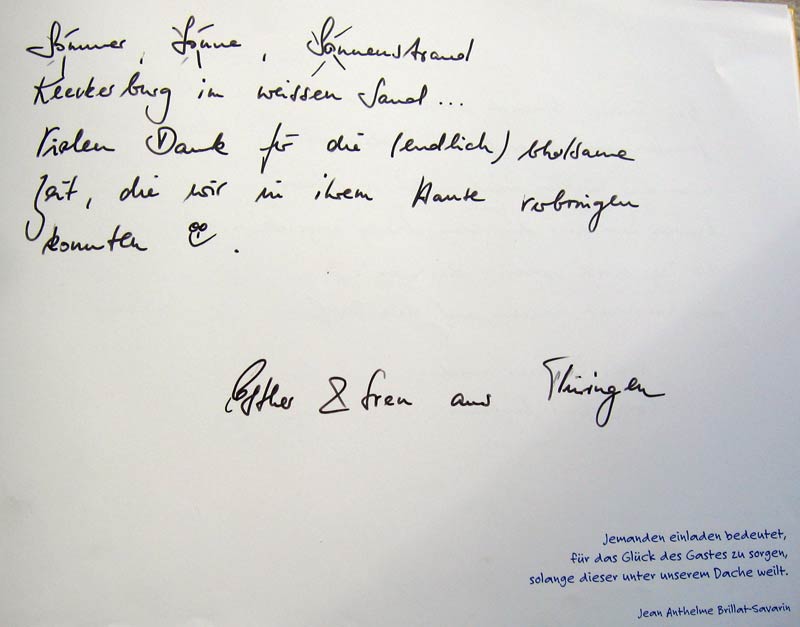 Sommer, Sonne, Sonnenstrand
Kleckerburg im weissen Sand...
Vielen Dank für die (endlich) erholsame
Zeit, die wir in ihrem Hause verbringen
konnten .
Esther & Sven aus Thüringen
Jemanden einladen bedeutet,
für das Glück des Gastes zu sorgen,
solange dieser unter unserem Dache weilt.
Jean Anthelme Brillat-Savarin